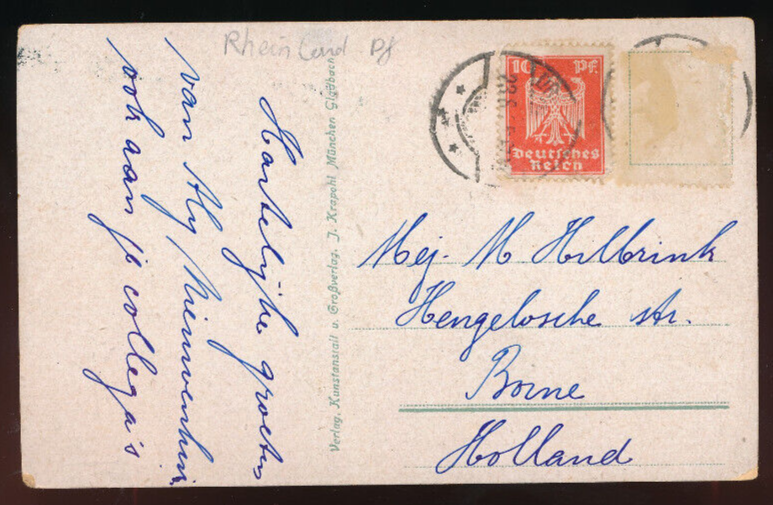 Rheinland Pf
Hartelijke groeten
van Aly Nieuwenhuis
ook aan je collega's
Verlag, Kunstanstalt u. Großverlag, J. Krapohl München Gladbach
10 Pf.
Deutsches
Reich
Mej. M Hilbrink
Hengelosche str.
Borne
Holland